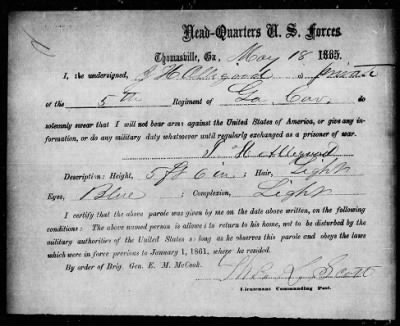 Head-Quarters U. S. Forces
Thomasville, Ga., May 18 1865.
I, the undersigned, J H Allgood a private
of the 5th Regiment of Ga Cav, do
solemnly swear that I will not bear arms against the United States of America, or give any in-
formation, or do any military duty whatsoever until regularly exchanged as a prisoner of war.
J H Allgood
Description: Height, 5 ft 6 in; Hair, Light
Eyes, Blue; Complexion, Light
I certify that the above parole was given by me on the date above written, on the following
conditions: The above named person is allowed to return to his home, not to be disturbed by the
military authorities of the United States so long as he observes this parole and obeys the laws
which were in force previous to January 1, 1861, where he resided.
By order of Brig. Gen. E. M. McCook. Scott
Lieutenant Commanding Post.